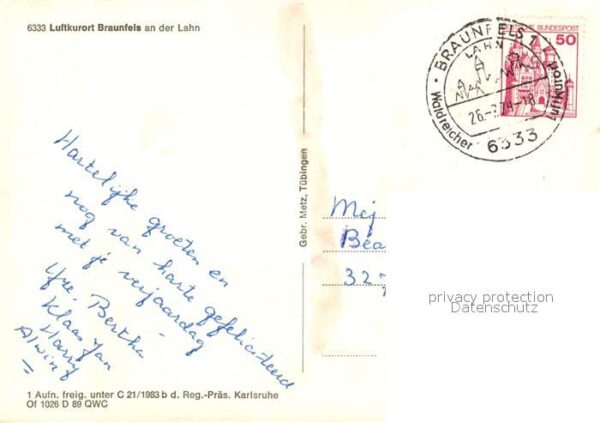 6333 Luftkurort Braunfels an der Lahn
BRAUNFELS 1
LAHN
Waldreicher Luftkurort
6333
DEUTSCHE BUNDESPOST
50
Hartelijke groeten en
nog van harte gefeliciteerd
met je verjaardag
Bertha
Klaas Jan
Harry
Gebr. Metz, Tübingen
Mej
Bea
32
privacy protection
Datenschutz
1 Aufn. freig. unter C 21/1983 b d. Reg.-Präs. Karlsruhe
Of 1026 D 89 QWC